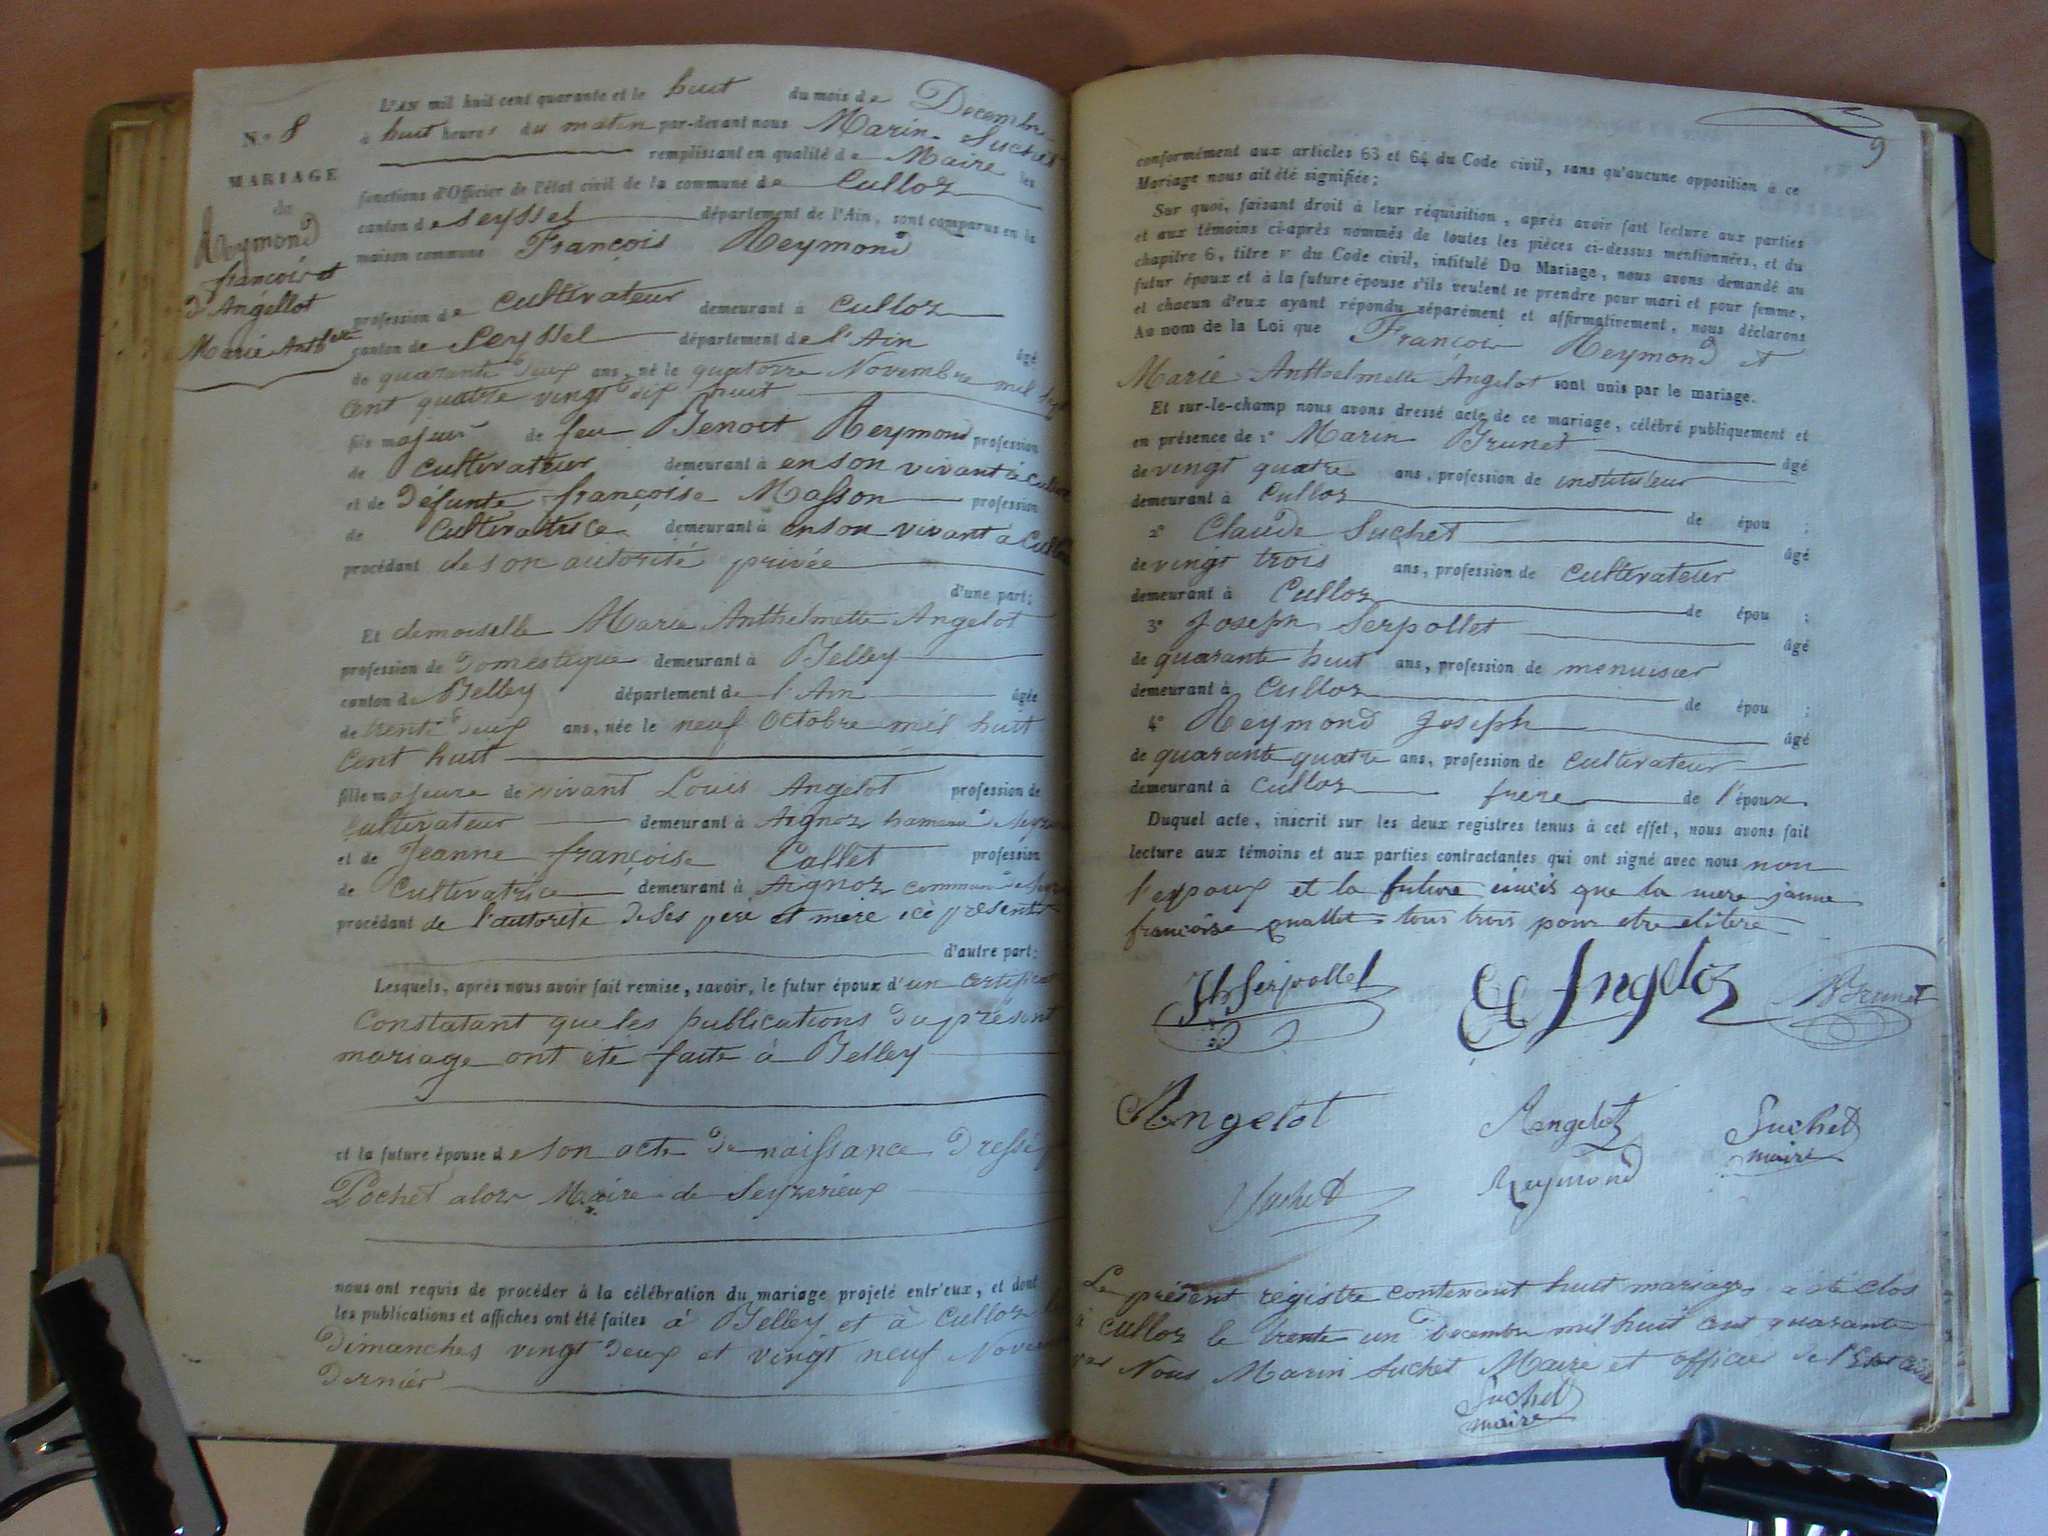 N.º 8
MARIAGE
de
Reymond
françois et
d'Angellot
Marie Anthelmette
L'AN mil huit cent quarante et le huit du mois de Décembre
à huit heures du matin par-devant nous Marin Suchet
remplissant en qualité de Maire les
fonctions d'Officier de l'état civil de la commune de Culloz
canton de Seyssel département de l'Ain, sont comparus en la
maison commune François Reymond
profession de Cultivateur demeurant à Culloz
canton de Seyssel département de l'Ain âgé
de quarante deux ans, né le quatorze Novembre mil sept
cent quatre vingt dix huit
fils majeur de feu Benoit Reymond profession
de cultivateur demeurant à en son vivant à Culloz
et de défunte françoise Masson profession
de Cultivatrice demeurant à en son vivant à Culloz
procédant de son autorité privée
d'une part;
Et demoiselle Marie Anthelmette Angelot
profession de domestique demeurant à Belley
canton de Belley département de l'Ain âgée
de trente deux ans, née le neuf Octobre mil huit
cent huit
fille majeure de vivant Louis Angelot profession de
Cultivateur demeurant à Aignoz hameau de
et de Jeanne françoise Callet profession
de Cultivatrice demeurant à Aignoz commune de
procédant de l'autorité de ses père et mère ici présents
d'autre part;
Lesquels, après nous avoir fait remise, savoir, le futur époux d'un certificat
Constatant que les publications du présent
mariage ont été faite à Belley
et la future épouse de son acte de naissance dressé
Pochet alors Maire de Seyzerieux
nous ont requis de procéder à la célébration du mariage projeté entr'eux, et dont
les publications et affiches ont été faites à Belley et à Culloz
Dimanches vingt deux et vingt neuf Novembre
dernier
9
conformément aux articles 63 et 64 du Code civil, sans qu'aucune opposition à ce
Mariage nous ait été signifiée;
Sur quoi, faisant droit à leur réquisition, après avoir fait lecture aux parties
et aux témoins ci-après nommés de toutes les pièces ci-dessus mentionnées, et du
chapitre 6, titre v du Code civil, intitulé Du Mariage, nous avons demandé au
futur époux et à la future épouse s'ils veulent se prendre pour mari et pour femme,
et chacun d'eux ayant répondu séparément et affirmativement, nous déclarons
Au nom de la Loi que François Reymond et
Marie Anthelmette Angelot sont unis par le mariage.
Et sur-le-champ nous avons dressé acte de ce mariage, célébré publiquement et
en présence de 1º Marin Brunet âgé
de vingt quatre ans, profession de instituteur
demeurant à Culloz de épou ;
2º Claude Suchet âgé
de vingt trois ans, profession de Cultivateur
demeurant à Culloz de épou ;
3º Joseph Serpollet âgé
de quarante huit ans, profession de menuisier
demeurant à Culloz de épou ;
4º Reymond Joseph âgé
de quarante quatre ans, profession de Cultivateur
demeurant à Culloz frère de l'époux.
Duquel acte, inscrit sur les deux registres tenus à cet effet, nous avons fait
lecture aux témoins et aux parties contractantes qui ont signé avec nous non
l'epoux et la future que la mere janne
francoise quallet tous trois pour etre
Jh Serpollet Angeloz Brunet
Angelot Angelot Suchet
maire
Suchet Reymond
Le présent registre contenant huit mariages a été clos
à Culloz le trente un Décembre mil huit cent quarante
par Nous Marin Suchet Maire et officier de l'Etat Civil
Suchet
maire